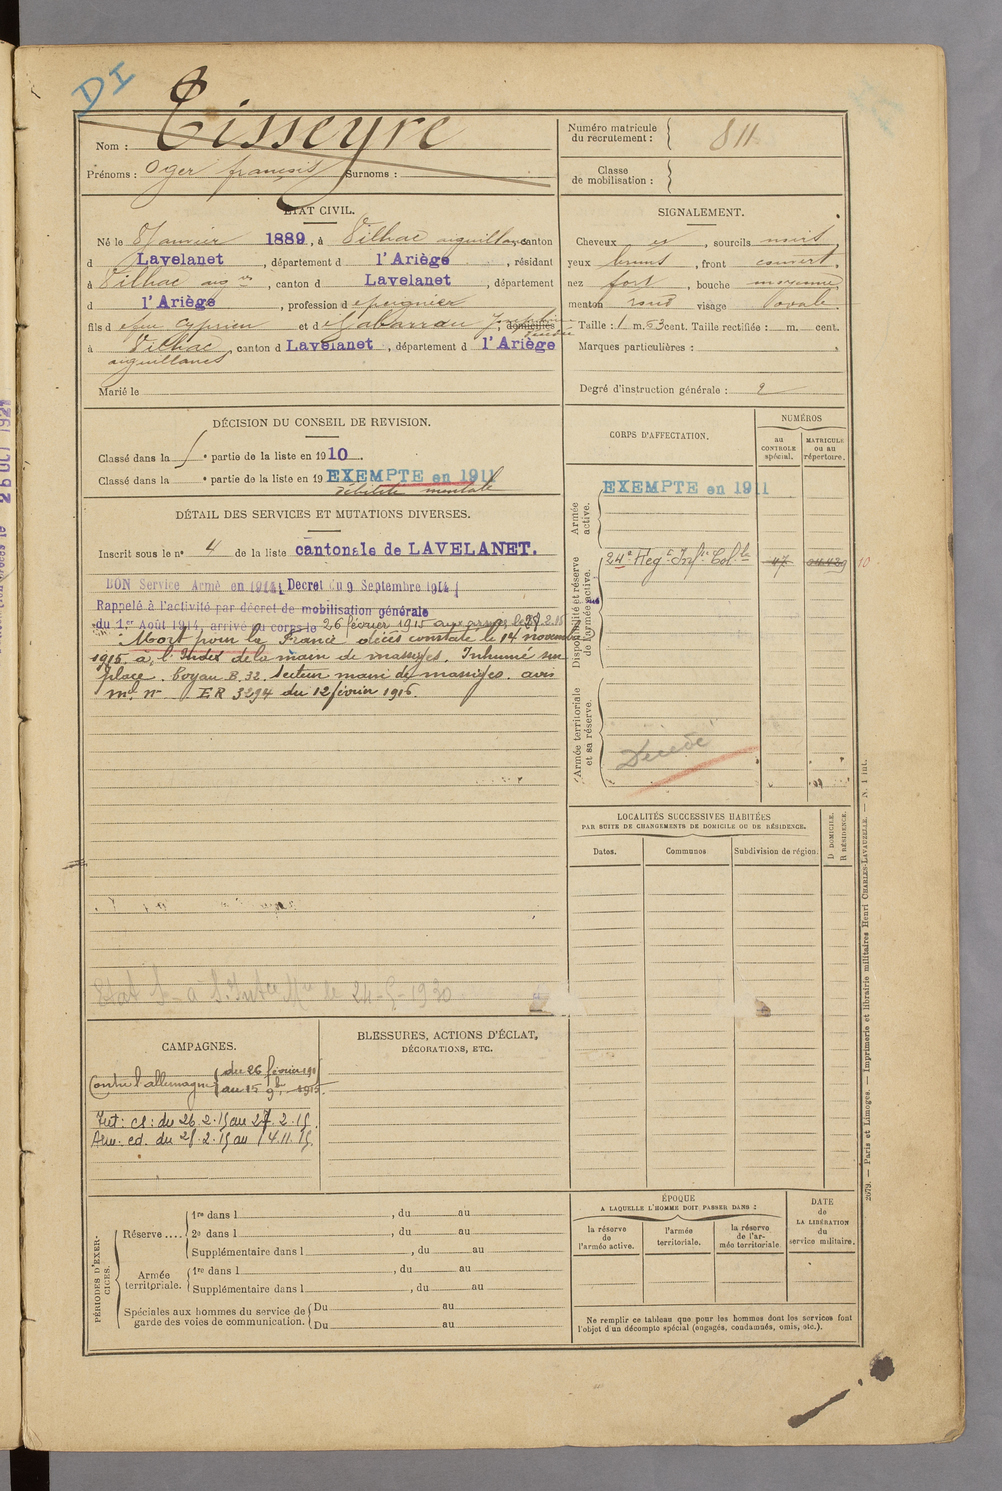 DI
Nom : Tisseyre
Prénoms : Oger françois Surnoms :
Numéro matricule
du recrutement : 811
Classe
de mobilisation :
ÉTAT CIVIL.
Né le 8 Janvier 1889, à Vilhac aiguillanes canton
d Lavelanet, département d l'Ariège, résidant
à Vilhac aig nes, canton d Lavelanet, département
d l'Ariège, profession d epeignier
fils d efeu Cyprien et d e Gabarrou Joséphine, domiciliés
à Vilhac, canton d Lavelanet, département d l'Ariège
aiguillanes
Marié le
SIGNALEMENT.
Cheveux et, sourcils noirs
yeux bruns, front couvert,
nez fort, bouche moyenne
menton rond visage ovale
Taille : 1 m. 53 cent. Taille rectifiée : m. cent.
Marques particulières :
Degré d'instruction générale : 2
DÉCISION DU CONSEIL DE REVISION.
Classé dans la e partie de la liste en 1910
Classé dans la e partie de la liste en 19 EXEMPTE en 1911
débilité mentale
DÉTAIL DES SERVICES ET MUTATIONS DIVERSES.
Inscrit sous le no 4 de la liste cantonale de LAVELANET.
BON Service Armé en 1914; Decret du 9 Septembre 1914;
Rappelé à l'activité par décret de mobilisation générale
du 1er Août 1914, arrivé au corps le 26 février 1915 aux armées le 28.2.15
Mort pour la France décès constaté le 14 novembre
1915 à l'Index de la main de massiges. Inhumé sur
place. boyau B. 32. Secteur main de massiges. avis
mel no ER 3294 du 12 février 1916.
Etat S- à l'Intce Mre le 24-5-1930
CORPS D'AFFECTATION.
NUMÉROS
au
CONTRÔLE
spécial.
MATRICULE
ou au
répertoire.
Armée
active.
EXEMPTE en 1911
Disponibilité et réserve
de l'armée active.
24e Rég.t Inf.ie Col.le
Armée territoriale
et sa réserve.
Décédé
LOCALITÉS SUCCESSIVES HABITÉES
PAR SUITE DE CHANGEMENTS DE DOMICILE OU DE RÉSIDENCE.
Dates.
Communes
Subdivision de région.
D DOMICILE.
R RÉSIDENCE.
CAMPAGNES.
Contre l'allemagne du 26 février 1915
au 15 9bre 1915.
Int: cl: du 26.2.15 au 27.2.15.
Aux: ed. du 28.2.15 au 14.11.15.
BLESSURES, ACTIONS D'ÉCLAT,
DÉCORATIONS, ETC.
PÉRIODES D'EXER-
CICES.
Réserve ....
1re dans l , du au
2e dans l , du au
Supplémentaire dans l , du au
Armée
territoriale.
1re dans l , du au
Supplémentaire dans l , du au
Spéciales aux hommes du service de
garde des voies de communication.
Du au
Du au
ÉPOQUE
A LAQUELLE L'HOMME DOIT PASSER DANS :
la réserve
de
l'armée active.
l'armée
territoriale.
la réserve
de l'ar-
mée territoriale.
DATE
de
LA LIBÉRATION
du
service militaire.
Ne remplir ce tableau que pour les hommes dont les services font
l'objet d'un décompte spécial (engagés, condamnés, omis, etc.).
2679. — Paris et Limoges. — Imprimerie et librairie militaires Henri CHARLES-LAVAUZELLE. — N. 1 int.